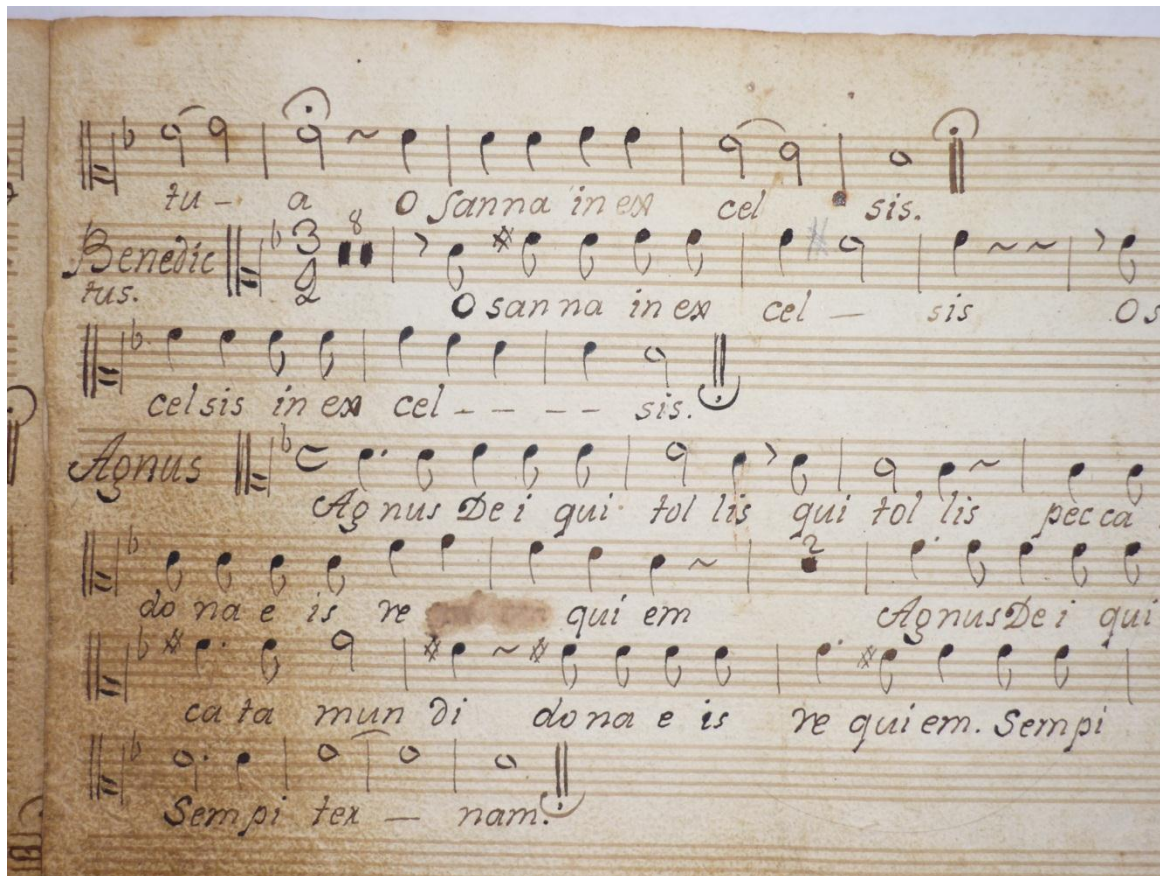 tu - a O sanna in ex cel sis.
8
Benedic 3
tus. 2 O sanna in ex cel - sis Os
celsis in ex cel - - - - sis.
Agnus
Agnus Dei qui tol lis qui tol lis pec ca
2
do na e is re qui em Agnus De i qui
ca ta mun di do na e is re qui em. Sempi
Sempi ter - nam.